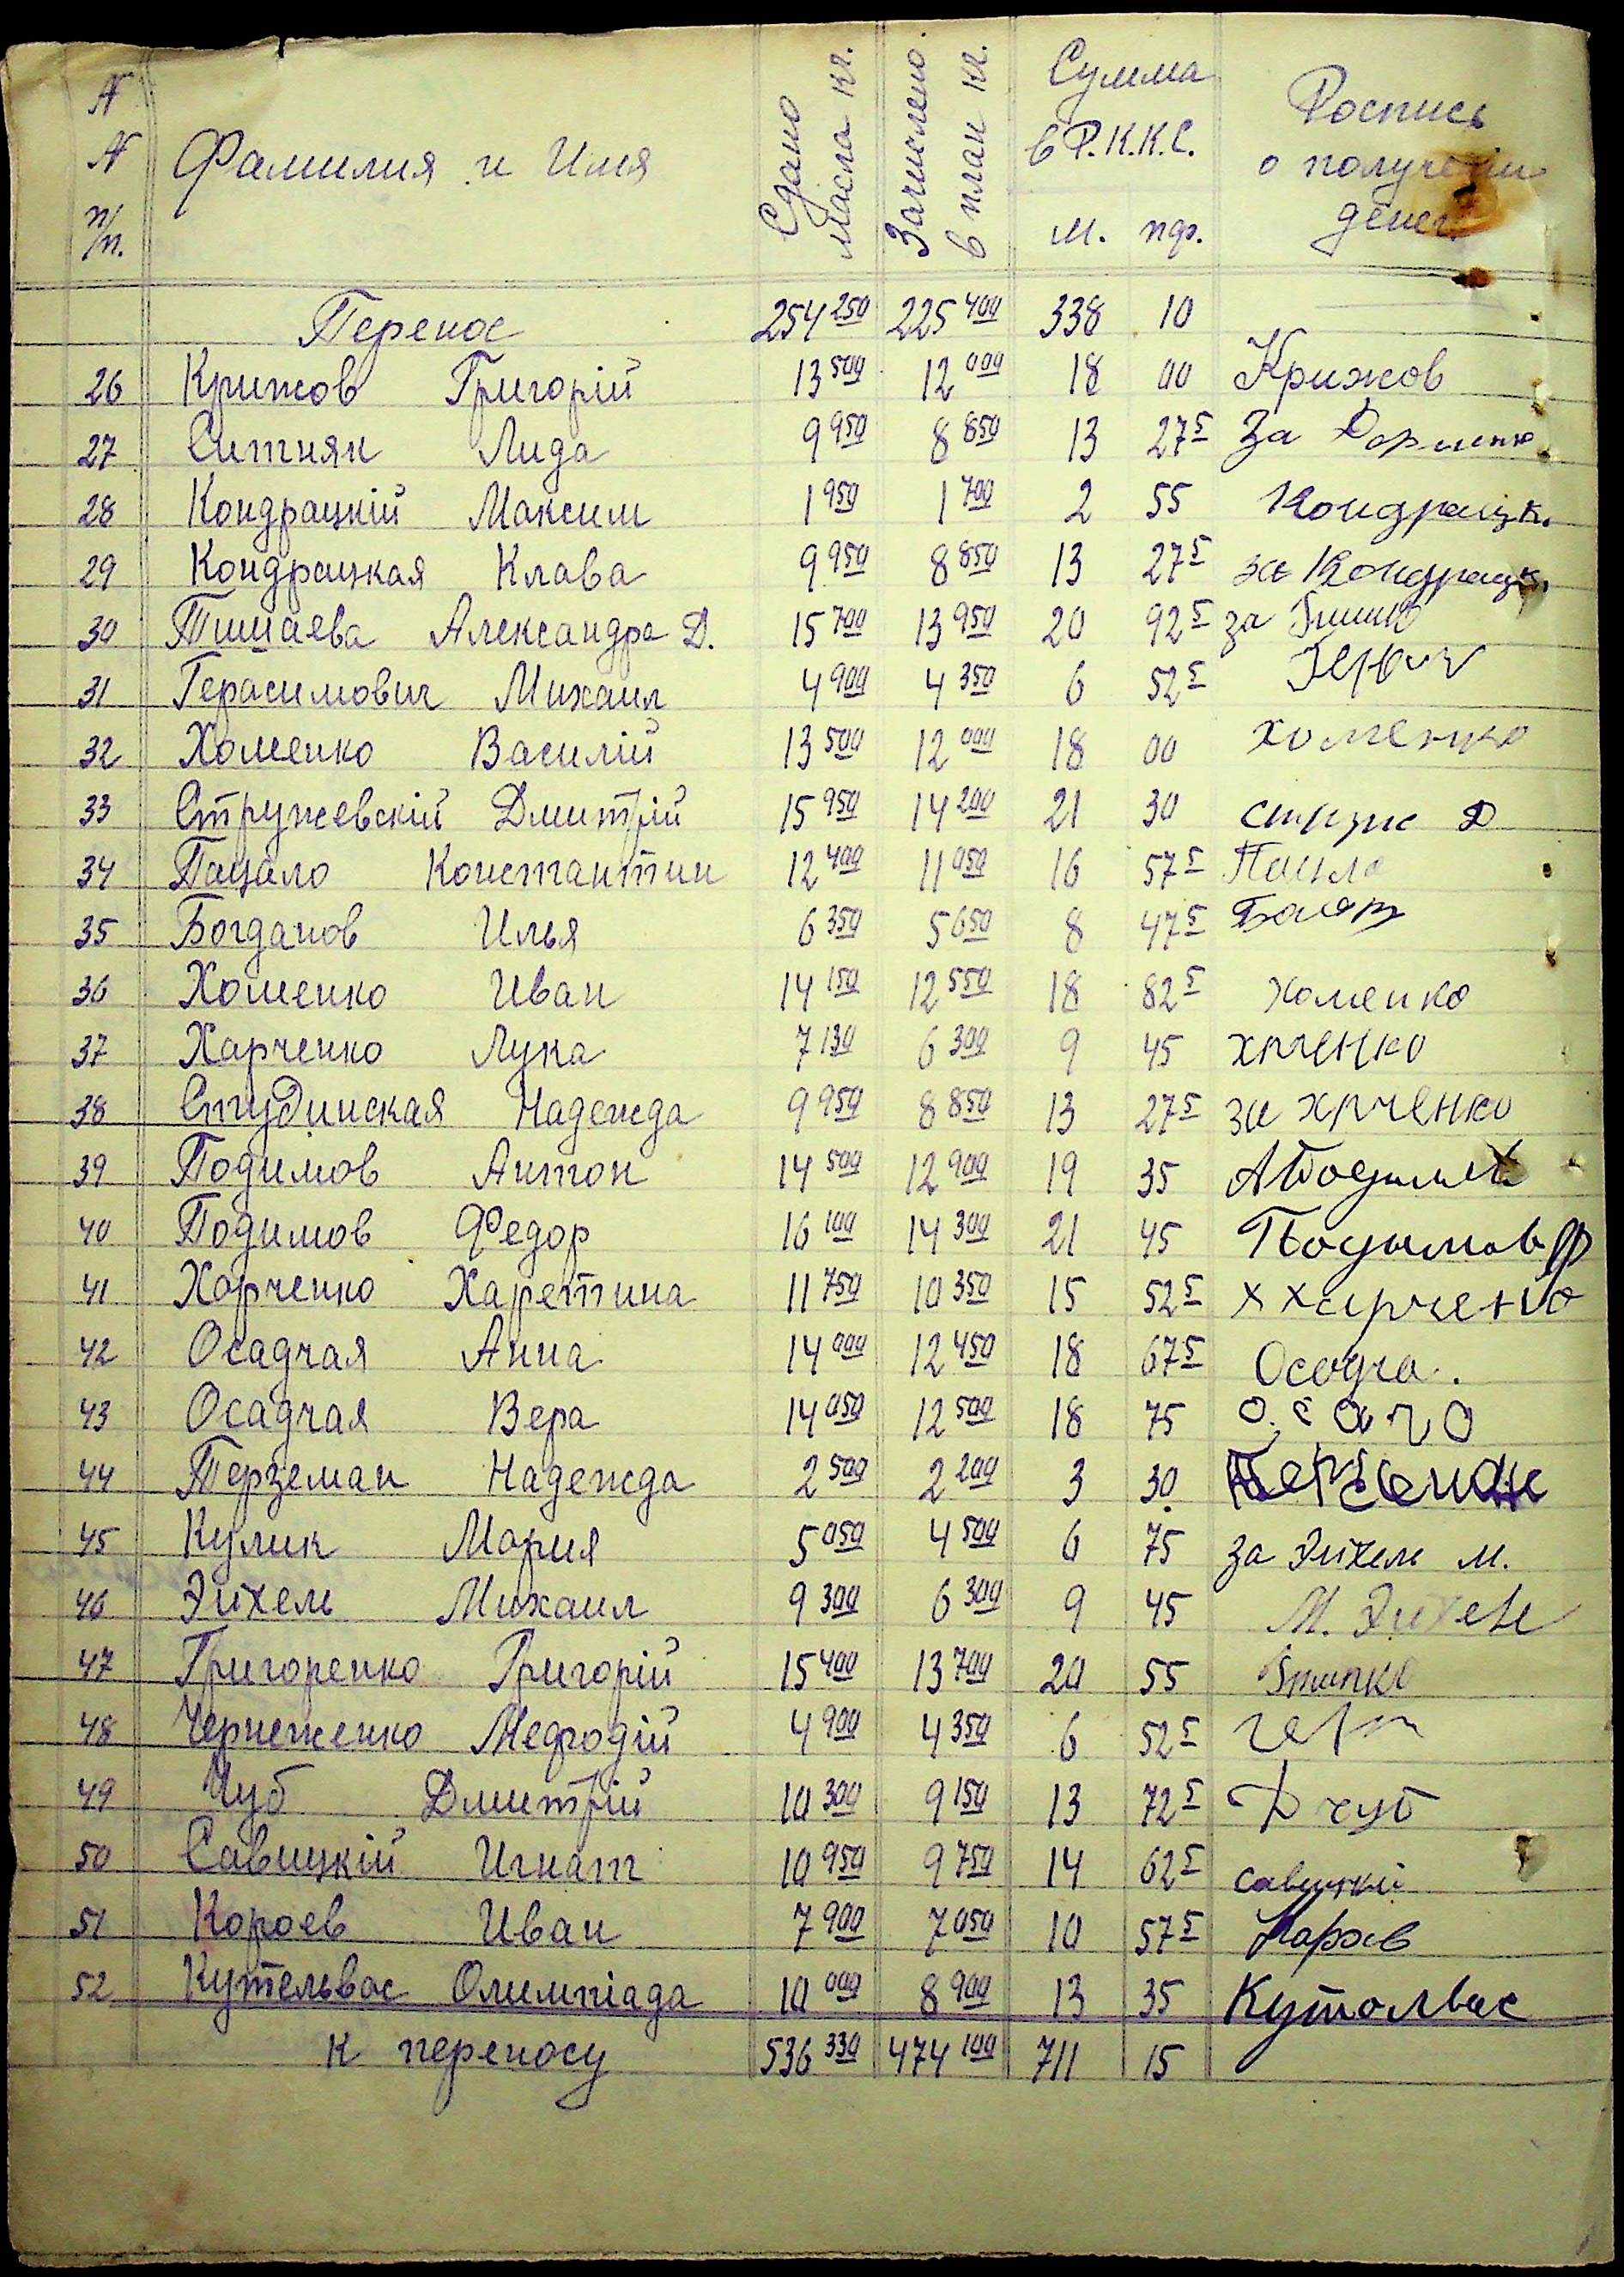 N N п/п. Фамилия и Имя Сдано масла кг. Зачислено в план кг. Сумма в Р.К.К.С. м. пф. Роспись о получении денег.
Перенос 254 250 225 400 338 10
26 Крижов Григорій 13 500 12 000 18 00 Крижов
27 Ситняк Лида 9 950 8 850 13 27 5 За
28 Кондрацкій Максим 1 950 1 700 2 55 Кондрацк.
29 Кондрацкая Клава 9 950 8 850 13 27 5 за Кондрацк.
30 Тишаева Александра Д. 15 700 13 950 20 92 5 за
31 Герасимович Михаил 4 900 4 350 6 52 5
32 Хоменко Василій 13 500 12 000 18 00 хоменко
33 Стружевскій Дмитрій 15 950 14 200 21 30 струж Д
34 Пацало Константин 12 400 11 050 16 57 5
35 Богданов Илья 6 350 5 650 8 47 5
36 Хоменко Иван 14 150 12 550 18 82 5 хоменко
37 Харченко Лука 7 130 6 300 9 45 хрченко
38 Студинская Надежда 9 950 8 850 13 27 5 за хрченко
39 Подимов Антон 14 500 12 900 19 35
40 Подимов Федор 16 100 14 300 21 45 Подимов Ф
41 Харченко Харетина 11 750 10 350 15 52 5 Х харченко
42 Осадчая Анна 14 000 12 450 18 67 5 Осодча.
43 Осадчая Вера 14 050 12 500 18 75
44 Терземан Надежда 2 500 2 200 3 30
45 Кулик Мария 5 050 4 500 6 75 за Эйхель М.
46 Эйхель Михаил 9 300 6 300 9 45 М. Эйхель
47 Григоренко Григорій 15 400 13 700 20 55
48 Чернеженко Мефодій 4 900 4 350 6 52 5
49 Чуб Дмитрій 10 300 9 150 13 72 5 Д чуб
50 Савицкій Игнат 10 950 9 750 14 62 5 савицкий
51 Короев Иван 7 900 7 050 10 57 5
52 Кутельвас Олимпіада 10 000 8 900 13 35 Кутолвас
К переносу 536 330 474 100 711 15